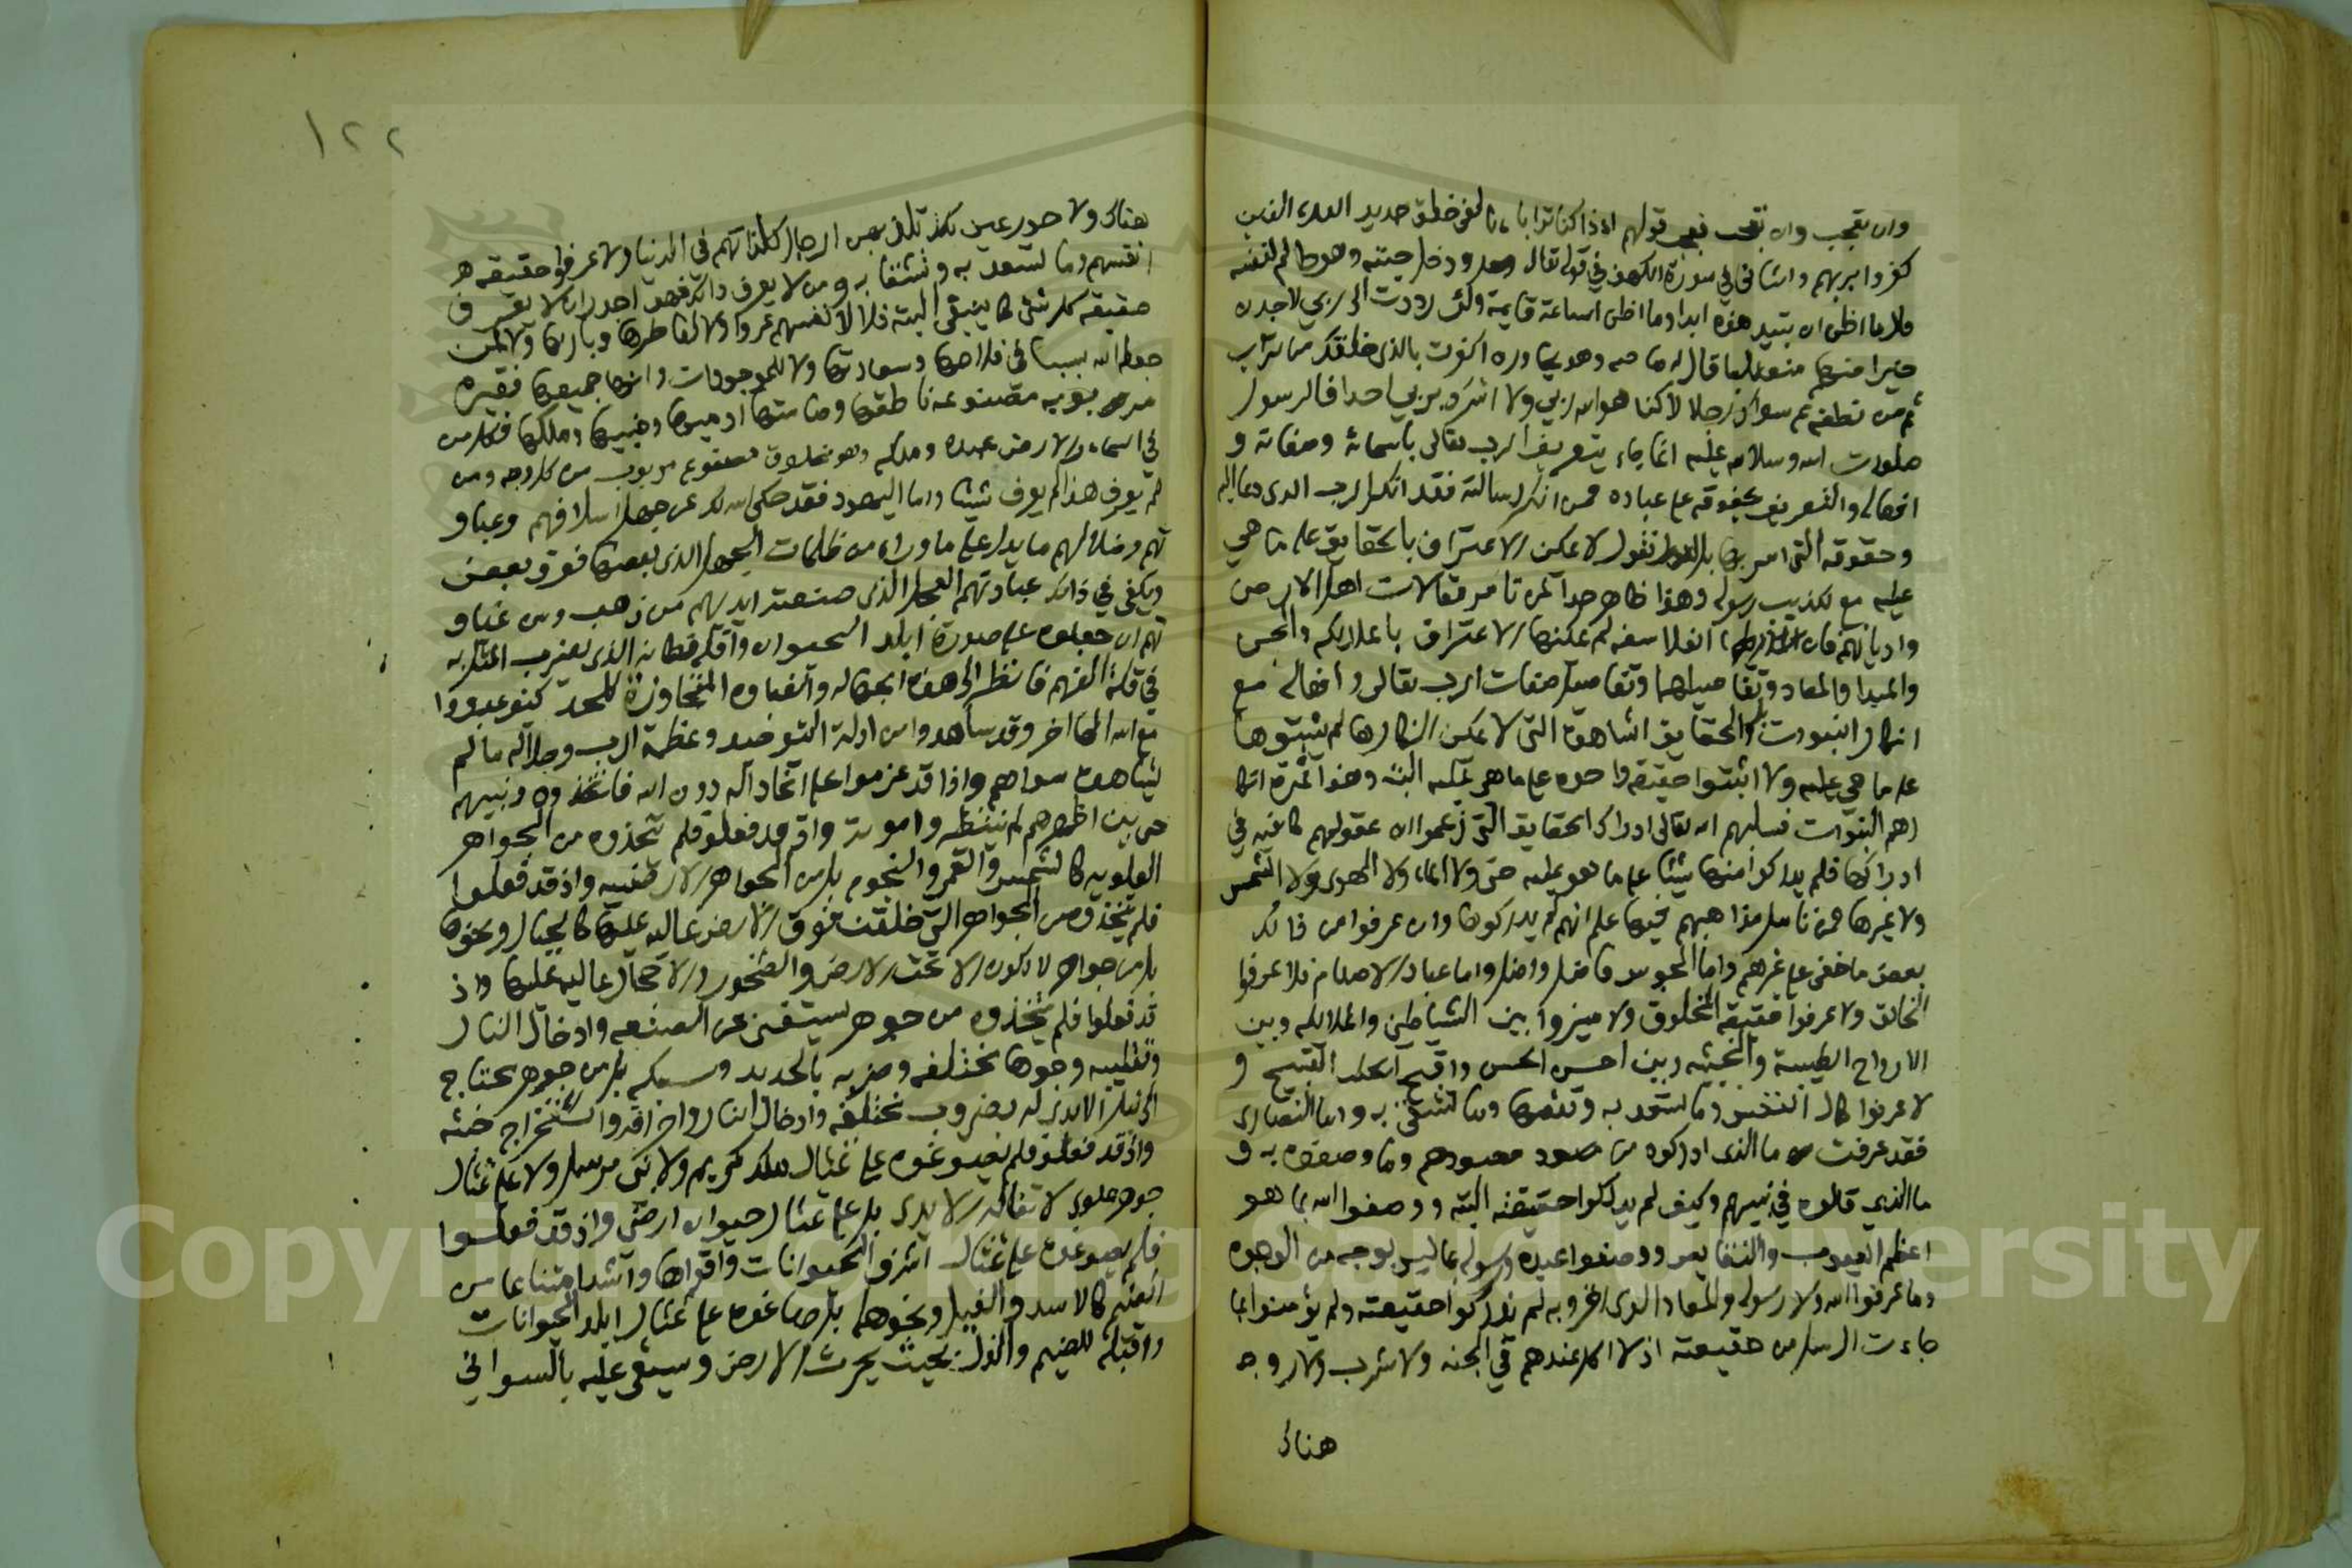 وان تعجب وان تعجب فعجب قولهم ااذا كنا ترابا ءانا لفي خلق جديد اولئك الذين
كفروا بربهم والثاني في سورة الكهف في قوله تعالى ودخل جنته وهو ظالم لنفسه
قال ما اظن ان تبيد هذه ابدا وما اظن الساعة قايمة ولئن رددت الى ربي لاجدن
خيرا منها منقلبا قال له صاحبه وهو يحاوره اكفرت بالذي خلقك من تراب
ثم من نطفة ثم سواك رجلا لاكنا هو الله ربي ولا اشرك بربي احدا فالرسول
صلوات الله وسلامه عليه انما جاء بتعريف الرب تعالى باسمائه وصفاته و
افعاله والتعريف بحقوقه على عباده فمن انكر رسالته فقد انكر الرب الذي دعا اليه
وحقوقه التي امر بها بل نقول لا يمكن الاعتراف بالحقايق على ما هي
عليه مع تكذيب رسوله وهذا ظاهر جدا لمن تامر مقالات اهل الارض
واديانهم فان الفلاسفه لم يمكنها الاعتراف بالملايكه والجن
والمبدا والمعاد وتفاصيلهما وتفاصيل صفات الرب تعالى وافعاله مع
انكار النبوات بل والحقايق المشاهدة التي لا يمكن انكارها لم يثبتوها
على ما هي عليه ولا اثبتوا حقيقة واحده على ما هي عليه البتة وهذا ثمرة انكا
رهم النبوات فسلبهم الله تعالى ادراك الحقايق التي زعموا ان عقولهم كافيه في
ادراكها فلم يدركوا منها شيئا على ما هو عليه حتى ولا الماء ولا الهوى ولا الشمس
ولا غيرها فمن تامل مذاهبهم فيها علم انهم لم يدركوها وان عرفوا من ذلك
بعض ما خفي على غيرهم واما المجوس فاضل واضل واما عباد الاصنام فلا عرفوا
الخالق ولا عرفوا حقيقة المخلوق ولا ميزوا بين الشياطين والملائكه وبين
الارواح الطيبة والخبيثه وبين احسن الحسن واقبح القبيح و
لا عرفوا كمال النفس وما تسعد به ونقصها وما تشقى به واما النصارى
فقد عرفت ما الذي ادركوه من معبودهم وما وصفوه به و
ما الذي قالوه في نبيهم وكيف لم يدركوا حقيقته البته ووصفوا الله بما هو
اعظم العيوب والنقايص ووصفوا عبده ورسوله بما ليس بوجه من الوجوه
وما عرفوا الله ولا رسوله والمعاد الذي اقروا به لم يدركوا حقيقته ولم يؤمنوا بما
جاءت به الرسل من حقيقته اذ لا اكل عندهم في الجنه ولا شرب ولا زوجه
هناك
١٢٢
هناك ولا حور عين يلذ بهن الرجال كلذاتهم في الدنيا ولا عرفوا حقيقه
انفسهم وما تسعد به وتشقا به ومن لا يعرف ذلك فهو اجدر ان لا يعرف
حقيقه كل شئ كما ينبغي البته فلا لانفسهم عرفوا ولا لفاطرها وباريها ولا لمن
جعله الله سببا في فلاحها وسعادتها ولا للموجودات وانها جميعها فقيره
مربوبه مصنوعه ناطقها وصامتها ادميها وجنيها وملكها فكل من
في السماء والارض عبده وملكه وهو مخلوق مصنوع مربوب من كل وجه ومن
لم يعرف هذا لم يعرف شيئا واما اليهود فقد حكى الله لك عن جهل اسلافهم وغباو
تهم وضلالهم ما يدل على ما وراءه من ظلمات الجهل الذي بعضها فوق بعض
ويكفي في ذلك عبادتهم العجل الذي صنعته ايديهم من ذهب ومن غباو
تهم ان جعلوه على صورة ابلد الحيوان واقله فطانه الذي يضرب المثل به
في قلة الفهم فانظر الى هذه الجهاله والغباوه المتجاوزة للحد كيف عبدوا
مع الله الها اخر وقد شاهدوا من ادلة التوحيد وعظمة الرب وجلاله ما لم
يشاهده سواهم واذا قد عزموا على اتخاذ اله دون الله فاتخذوه ونبيهم
حي بين اظهرهم لم ينتظروا موته واذ قد فعلوا فلم يتخذوه من الجواهر
العلويه كالشمس والقمر والنجوم بل من الجواهر الارضيه واذ قد فعلوا
فلم يتخذوه من الجواهر التي خلقت فوق الارض عاليه عليها كالجبال ونحوها
بل من جواهر لا تكون الا تحت الارض والصخور والاحجار عاليه عليها واذ
قد فعلوا فلم يتخذوه من جوهر يستغني عن الصنعه وادخال النار
وتقليبه وجوها مختلفه وضربه بالحديد وسبكه بل من جوهر يحتاج
الى نيل الايدي له بضروب مختلفه وادخال النار واحراقه واستخراج خبثه
واذ قد فعلوا فلم يصوغوه على تمثال ملك كريم ولا نبي مرسل ولا على تمثال
جوهر علوي لا تناله الايدي بل على تمثال حيوان ارضي واذ قد فعلوا
فلم يصوغوه على تمثال اشرف الحيوانات واقواها واشدها امتناعا من
الضيم كالاسد والفيل ونحوهما بل صاغوه على تمثال ابلد الحيوانات
واقبله للضيم والذل بحيث يحرث الارض ويسقى عليه بالسواني
Copyright © King Saud University